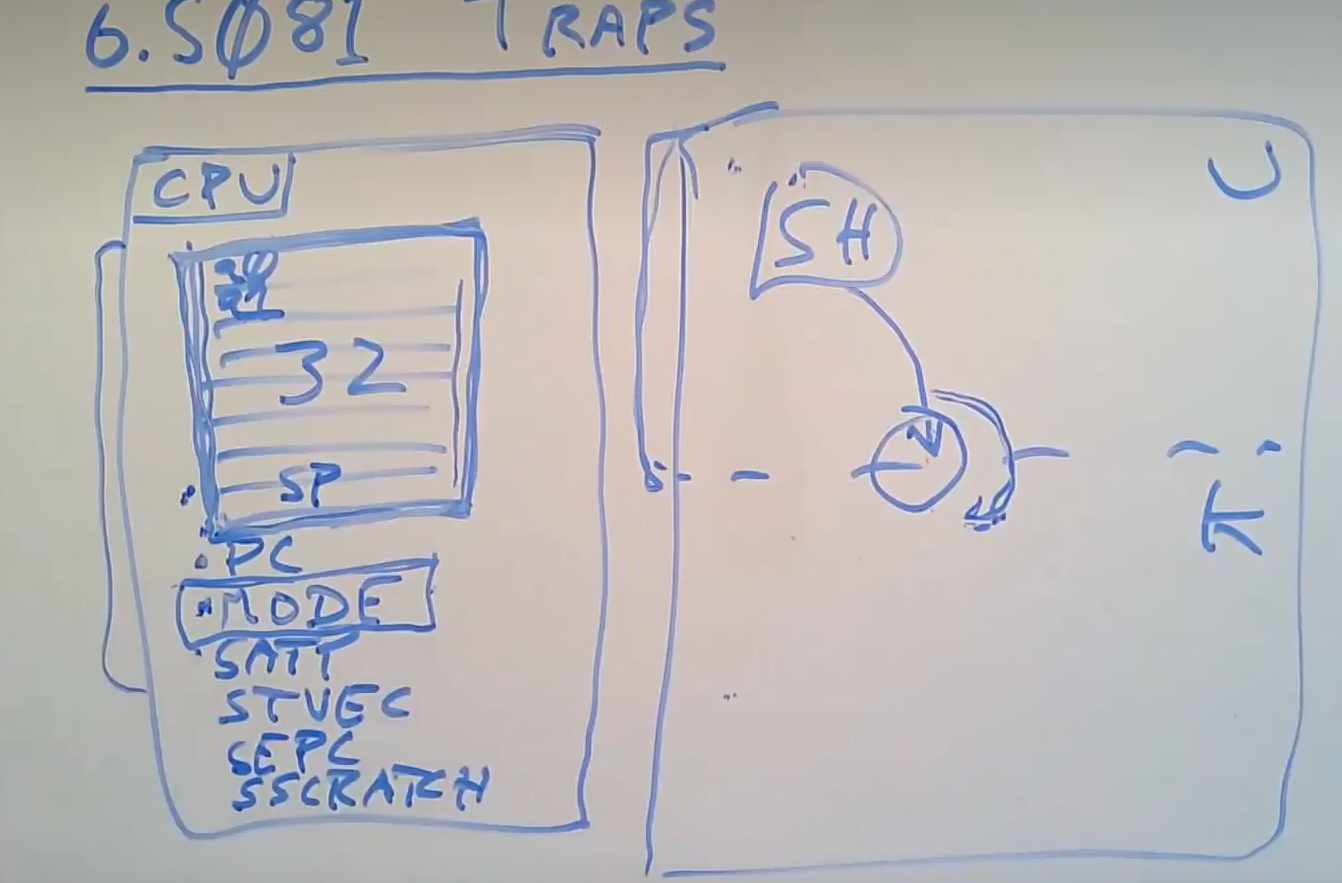 6.S081 TRAPS
CPU
a0
a1
32
SP
PC
MODE
SATP
STVEC
SEPC
SSCRATCH
U
SH
W
K